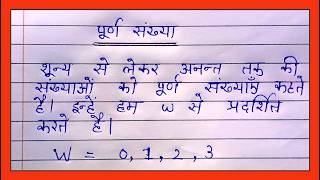 पूर्ण संख्या
शून्य से लेकर अनन्त तक की
संख्याओं को पूर्ण संख्याए कहते
है। इन्हें हम W से प्रदर्शित
करते है।
W = 0, 1, 2, 3